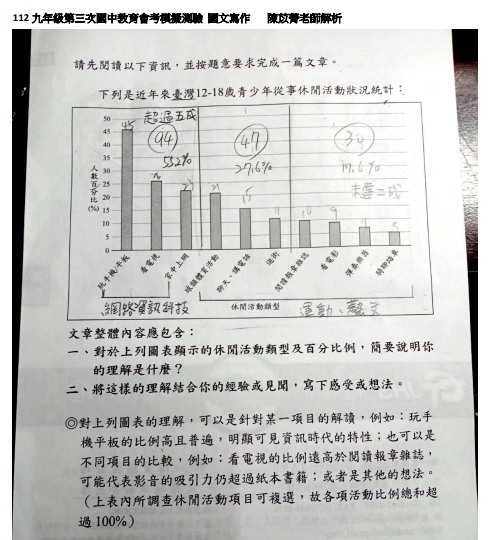 112 九年級第三次國中教育會考模擬測驗 國文寫作 陳苡菁老師解析
請先閱讀以下資訊，並按題意要求完成一篇文章。
下列是近年來臺灣12-18歲青少年從事休閒活動狀況統計：
超過五成
94
47
55.2%
27.6%
未達三成
人數百分比(%)
50
45
40
35
30
25
20
15
10
5
0
玩手機/平板
看電視
家中上網
球類體育活動
聊天、講電話
逛街
閱讀報章雜誌
看電影
彈奏樂器
騎腳踏車
網路資訊科技
休閒活動類型
運動、藝文
文章整體內容應包含：
一、對於上列圖表顯示的休閒活動類型及百分比例，簡要說明你
的理解是什麼？
二、將這樣的理解結合你的經驗或見聞，寫下感受或想法。
◎對上列圖表的理解，可以是針對某一項目的解讀，例如：玩手
機平板的比例高且普遍，明顯可見資訊時代的特性；也可以是
不同項目的比較，例如：看電視的比例遠高於閱讀報章雜誌，
可能代表影音的吸引力仍超過紙本書籍；或者是其他的想法。
（上表內所調查休閒活動項目可複選，故各項活動比例總和超
過 100%）